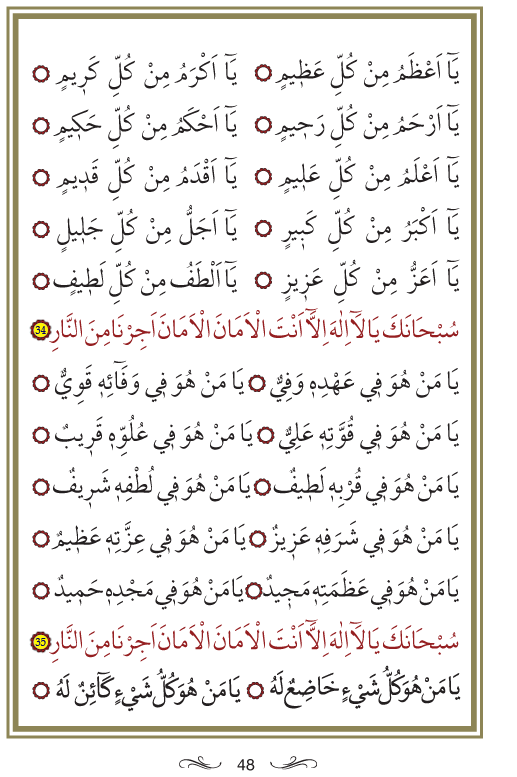 يَآ اَعْظَمُ مِنْ كُلِّ عَظ۪يمٍ ۞ يَآ اَكْرَمُ مِنْ كُلِّ كَر۪يمٍ ۞
يَآ اَرْحَمُ مِنْ كُلِّ رَح۪يمٍ ۞ يَآ اَحْكَمُ مِنْ كُلِّ حَك۪يمٍ ۞
يَآ اَعْلَمُ مِنْ كُلِّ عَل۪يمٍ ۞ يَآ اَقْدَمُ مِنْ كُلِّ قَد۪يمٍ ۞
يَآ اَكْبَرُ مِنْ كُلِّ كَب۪يرٍ ۞ يَآ اَجَلُّ مِنْ كُلِّ جَل۪يلٍ ۞
يَآ اَعَزُّ مِنْ كُلِّ عَز۪يزٍ ۞ يَآ اَلْطَفُ مِنْ كُلِّ لَط۪يفٍ ۞
سُبْحَانَكَ يَا لَآ اِلٰهَ اِلَّآ اَنْتَ الْاَمَانَ الْاَمَانَ اَجِرْنَا مِنَ النَّارِ 34
يَا مَنْ هُوَ ف۪ي عَهْدِه۪ وَفِيٌّ ۞ يَا مَنْ هُوَ ف۪ي وَفَآئِه۪ قَوِيٌّ ۞
يَا مَنْ هُوَ ف۪ي قُوَّتِه۪ عَلِيٌّ ۞ يَا مَنْ هُوَ ف۪ي عُلُوِّه۪ قَر۪يبٌ ۞
يَا مَنْ هُوَ ف۪ي قُرْبِه۪ لَط۪يفٌ ۞ يَا مَنْ هُوَ ف۪ي لُطْفِه۪ شَر۪يفٌ ۞
يَا مَنْ هُوَ ف۪ي شَرَفِه۪ عَز۪يزٌ ۞ يَا مَنْ هُوَ ف۪ي عِزَّتِه۪ عَظ۪يمٌ ۞
يَا مَنْ هُوَ ف۪ي عَظَمَتِه۪ مَج۪يدٌ ۞ يَا مَنْ هُوَ ف۪ي مَجْدِه۪ حَم۪يدٌ ۞
سُبْحَانَكَ يَا لَآ اِلٰهَ اِلَّآ اَنْتَ الْاَمَانَ الْاَمَانَ اَجِرْنَا مِنَ النَّارِ 35
يَا مَنْ هُوَ كُلُّ شَيْءٍ خَاضِعٌ لَهُ ۞ يَا مَنْ هُوَ كُلُّ شَيْءٍ كَآئِنٌ لَهُ ۞
48